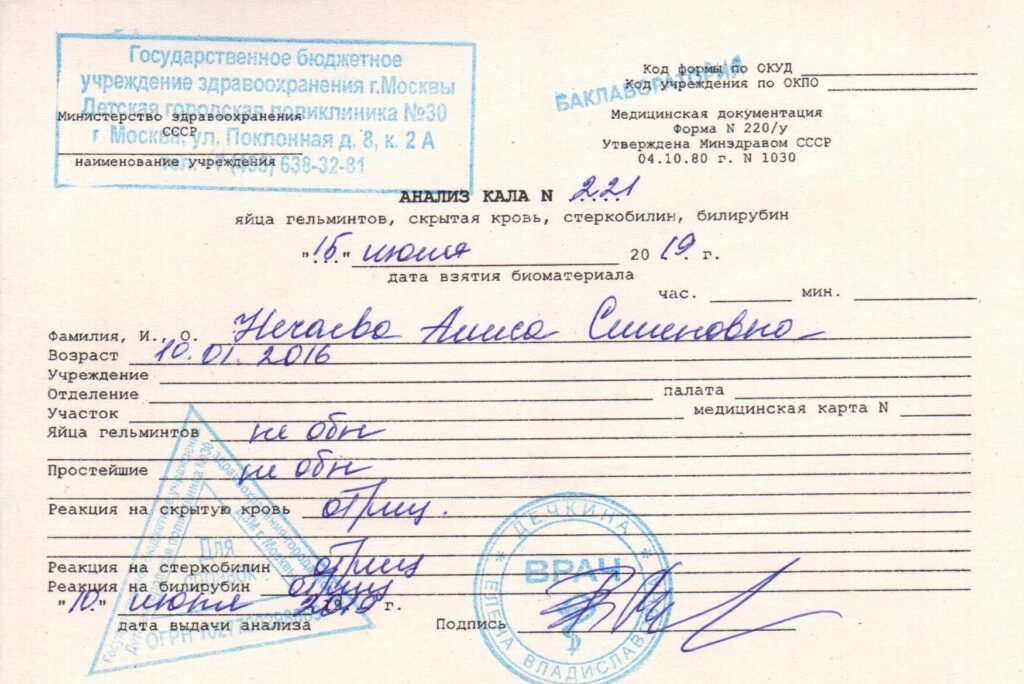 Государственное бюджетное
учреждение здравоохранения г.Москвы
Детская городская поликлиника №30
г. Москва, ул. Поклонная д. 8, к. 2 А
638-32-81
Министерство здравоохранения
СССР
наименование учреждения
БАКЛАБОРАТОРИЯ
Код формы по ОКУД
Код учреждения по ОКПО
Медицинская документация
Форма N 220/у
Утверждена Минздравом СССР
04.10.80 г. N 1030
АНАЛИЗ КАЛА N 221
яйца гельминтов, скрытая кровь, стеркобилин, билирубин
"15" июля 2019 г.
дата взятия биоматериала
час. мин.
Фамилия, И., О. Нечаева Алиса Семеновна
Возраст 10.01.2016
Учреждение
Отделение палата
Участок медицинская карта N
Яйца гельминтов не обн
Простейшие не обн
Реакция на скрытую кровь отриц.
Реакция на стеркобилин отриц
Реакция на билирубин отриц
"10" июля 2019 г.
дата выдачи анализа Подпись
Для
справок
ОГРН
ДЕЧКИНА
ВРАЧ
ЕЛЕНА ВЛАДИСЛАВ